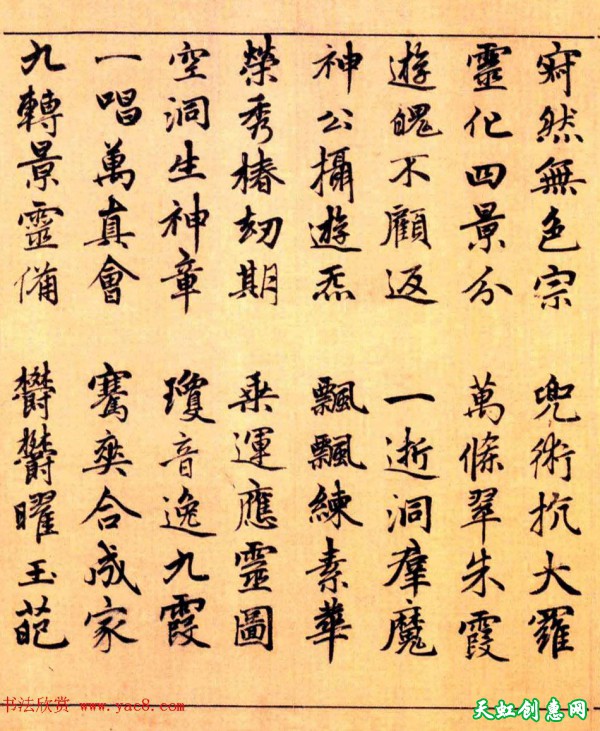 寂然無色宗　兜術抗大羅
靈化四景分　萬條翠朱霞
遊魄不顧返　一逝洞群魔
神公攝遊炁　飄飄練素華
榮秀椿劫期　乘運應靈圖
空洞生神章　瓊音逸九霞
一唱萬真會　騫爽合成家
九轉景靈備　鬱鬱曜玉葩
书法欣赏 www.yac8.com
天虹创意网